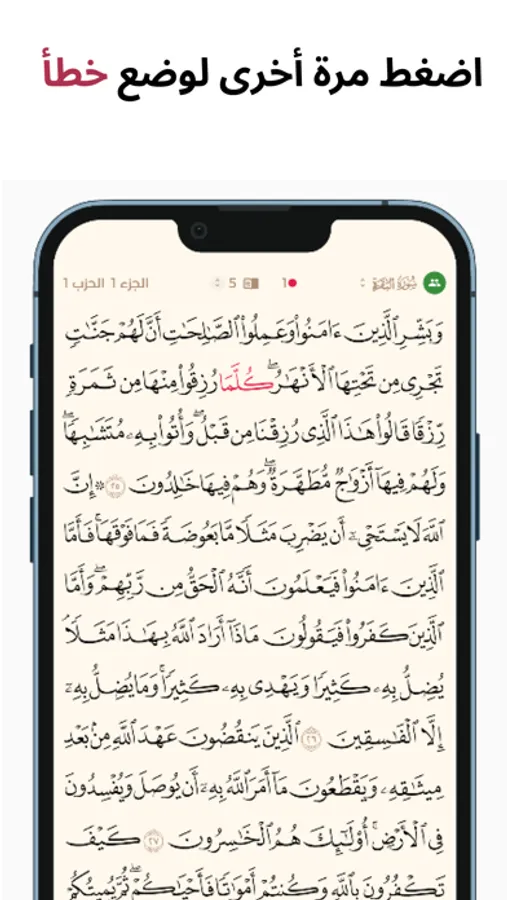 اضغط مرة أخرى لوضع خطأ
سُورَةُ البَقَرَةِ 1 5 الجزء 1 الحزب 1
وَبَشِّرِ ٱلَّذِينَ ءَامَنُوا۟ وَعَمِلُوا۟ ٱلصَّـٰلِحَـٰتِ أَنَّ لَهُمْ جَنَّـٰتٍ
تَجْرِى مِن تَحْتِهَا ٱلْأَنْهَـٰرُ ۖ كُلَّمَا رُزِقُوا۟ مِنْهَا مِن ثَمَرَةٍ
رِّزْقًا قَالُوا۟ هَـٰذَا ٱلَّذِى رُزِقْنَا مِن قَبْلُ ۖ وَأُتُوا۟ بِهِۦ مُتَشَـٰبِهًا ۖ
وَلَهُمْ فِيهَآ أَزْوَٰجٌ مُّطَهَّرَةٌ ۖ وَهُمْ فِيهَا خَـٰلِدُونَ ٢٥ ۞ إِنَّ
ٱللَّهَ لَا يَسْتَحْىِۦٓ أَن يَضْرِبَ مَثَلًا مَّا بَعُوضَةً فَمَا فَوْقَهَا ۚ فَأَمَّا
ٱلَّذِينَ ءَامَنُوا۟ فَيَعْلَمُونَ أَنَّهُ ٱلْحَقُّ مِن رَّبِّهِمْ ۖ وَأَمَّا
ٱلَّذِينَ كَفَرُوا۟ فَيَقُولُونَ مَاذَآ أَرَادَ ٱللَّهُ بِهَـٰذَا مَثَلًا ۘ
يُضِلُّ بِهِۦ كَثِيرًا وَيَهْدِى بِهِۦ كَثِيرًا ۚ وَمَا يُضِلُّ بِهِۦٓ
إِلَّا ٱلْفَـٰسِقِينَ ٢٦ ٱلَّذِينَ يَنقُضُونَ عَهْدَ ٱللَّهِ مِنۢ بَعْدِ
مِيثَـٰقِهِۦ وَيَقْطَعُونَ مَآ أَمَرَ ٱللَّهُ بِهِۦٓ أَن يُوصَلَ وَيُفْسِدُونَ
فِى ٱلْأَرْضِ ۚ أُو۟لَـٰٓئِكَ هُمُ ٱلْخَـٰسِرُونَ ٢٧ كَيْفَ
تَكْفُرُونَ بِٱللَّهِ وَكُنتُمْ أَمْوَٰتًا فَأَحْيَـٰكُمْ ۖ ثُمَّ يُمِيتُكُمْ